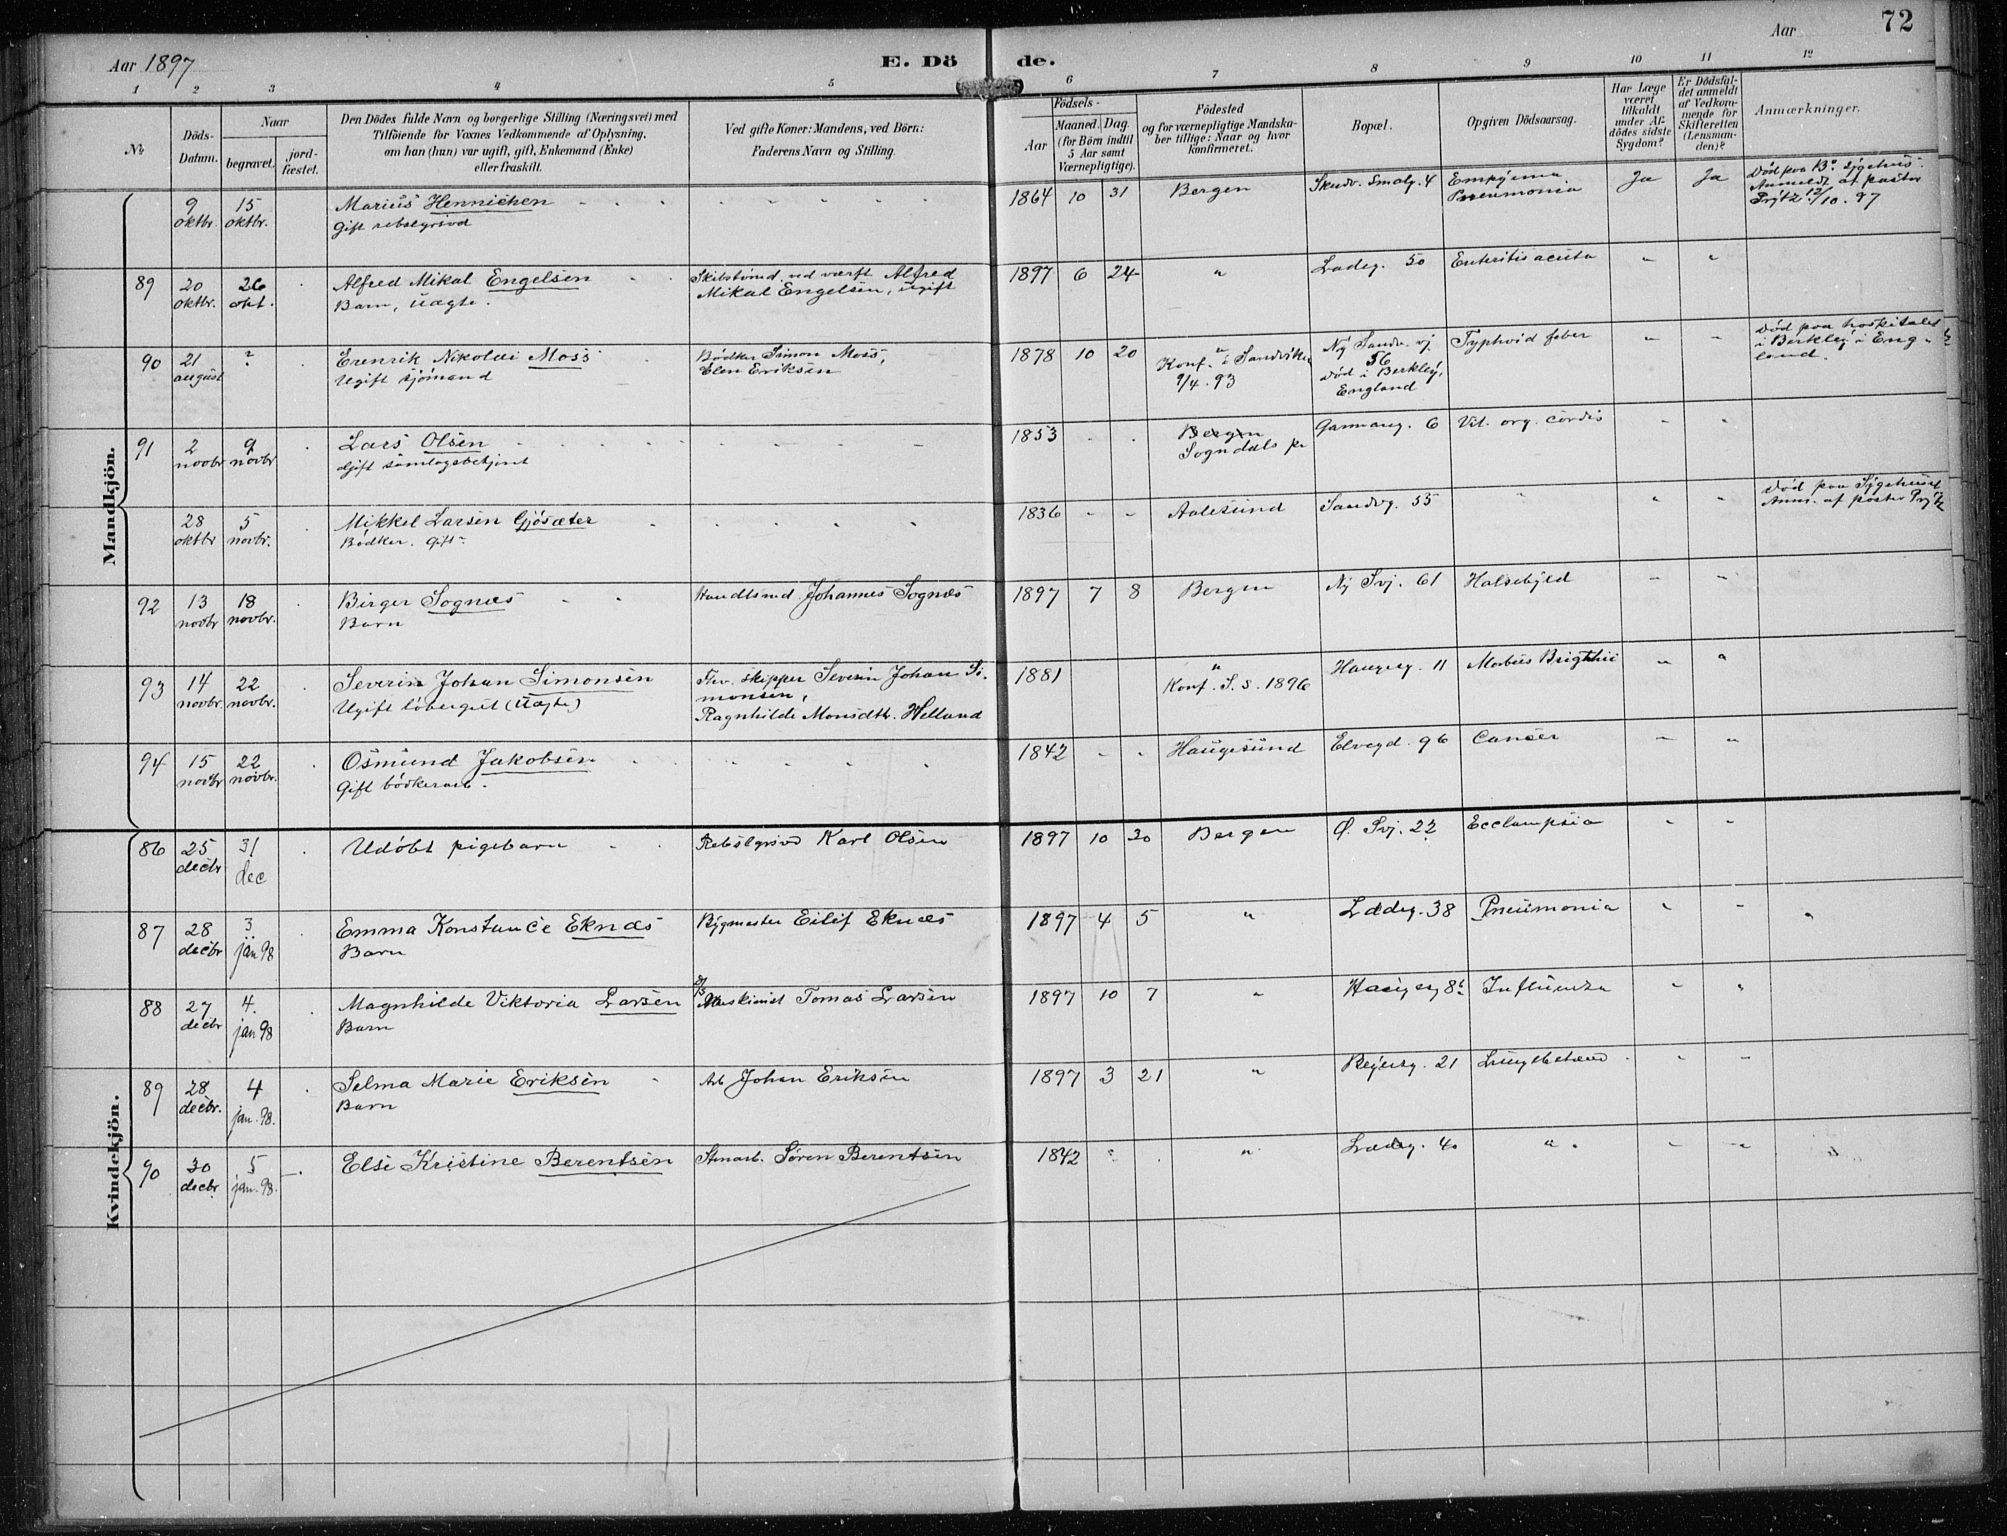 72
Aar 1897
E. Dö de.
Aar
1 2 3 4 5 6 7 8 9 10 11 12
№
Döds-
Datum.
Naar
begravet.
jord-
fæstet.
Den Dödes fulde Navn og borgerlige Stilling (Næringsvei) med
Tilföiende for Voxnes Vedkommende af Oplysning,
om han (hun) var ugift, gift, Enkemand (Enke)
eller fraskilt.
Ved gifte Koner: Mandens, ved Börn:
Faderens Navn og Stilling.
Födsels-
Aar
Maaned. Dag.
(for Börn indtil
5 Aar samt
Værnepligtige).
Födested
og for værnepligtige Mandska-
ber tillige: Naar og hvor
konfirmeret.
Bopæl.
Opgiven Dödsaarsag.
Har Læge
været
tilkaldt
under Af-
dödes sidste
Sygdom?
Er Dödsfal-
det anmeldt
af Vedkom-
mende for
Skifteretten
(Lensman-
den)?
Anmærkninger.
Mandkjön.
9 15 Marius Hennichen 1864 10 31 Bergen Sandv. Smalg. 4 Empyema Ja Ja Død paa B. Sygehus.
oktbr. oktbr. Gift rebslgrsvd Pneumonia Anmeldt af pastor
Prytz 12/10. 97
89 20 26 Alfred Mikal Engelsen Skibstømd. ved værft Alfred 1897 6 24 " Ladeg. 50 Enteritis acuta " "
oktbr. okt. Barn, uægte. Mikal Engelsen, ugift
90 21 ? Erenrik Nikolai Moss Bødker Simon Moss, 1878 10 20 " Ny Sandv. vj. Typhoid feber " " Død paa hospitalet
august Ugift sjømand Elen Eriksen Konf. i Sandviken 56 i Berkley i Eng-
9/4. 93 død i Berkley, land.
England
91 2 9 Lars Olsen 1853 Bergen 6 Vit. org. cordis " "
novbr novbr. Gift samlagsbetjent Sogndals
28 5 Mikkel Larsen Gjøsæter 1836 Aalesund Sandvg. 55 " " " Død paa Sygehuset
oktbr novbr. Bødker. Gift Anm. af pastor Prytz
92 13 18 Birger Sognæs Handlsmd. Johannes Sognæs 1897 7 8 Bergen Ny Svj. 61 Halsebyld " "
novbr novbr. Barn
93 14 22 Severin Johan Simonsen Fhv. skipper Severin Johan Si- 1881 " Haugeg. 11 Morbus Brigthii " "
novbr. novbr. Ugift løbergut (Uægte) monsen, Konf. S. s. 1896
Ragnhilde Monsdtr. Helland
94 15 22 Osmund Jakobsen 1842 Haugesund Elvegd. 96 Cancer " "
novbr novbr. Gift bødkerarb.
Kvindekjön.
86 25 31 Udøbt pigebarn Rebslgrsvd Karl Olsen 1897 10 30 Bergen Ø. Svj. 22 Ecclampsia " "
decbr dec
87 28 3 Emma Konstance Eknæs Bygmester Eilif Eknæs 1897 4 5 " Ladeg. 38 Pneumonia " "
decbr jan 98 Barn
88 27 4. Magnhilde Viktoria Larsen D/S Maskinist Tomas Larsen 1897 10 7 " Haugeg 8b Influenza " "
decbr jan 98 Barn
89 28 4 Selma Marie Eriksen Arb Johan Eriksen 1897 3 21 " 21 Lungebetænd. " "
decbr. jan. 98. Barn
90 30 5 Elsi Kristine Berentsen Stenarb. Søren Berentsen 1842 " " Ladeg. 40 " " "
decbr jan. 98.